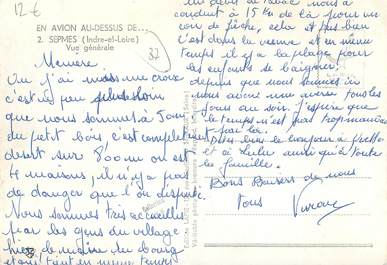 12€
EN AVION AU-DESSUS DE...
2. SEPMES (Indre-et-Loire)
Vue générale
32
Memere
Ou j'ai mis une croix
c'est un peu plus loin
que nous sommes à Jouy
du petit bois, c'est complètement
désert sur 800m on est
4 maisons, il n'y a pas
de danger que l'on dispute.
Nous sommes très accueillis
par les gens du village
hier le maire du bourg
et en même temps
de tabac nous a
conduit à 15 Km de là pour un
coin de pêche, cela est très bien
c'est dans la vienne et en même
temps il y a la plage pour
les enfants de baigner.
depuis que nous sommes ici
nous avons une averse tous les
jours au soir. J'espère que
le temps n'est pas trop mauvais
par là.
bien le bonjour à Yvette
et à Lulu ainsi qu'à toute
la famille.
Bons Baisers de nous
tous